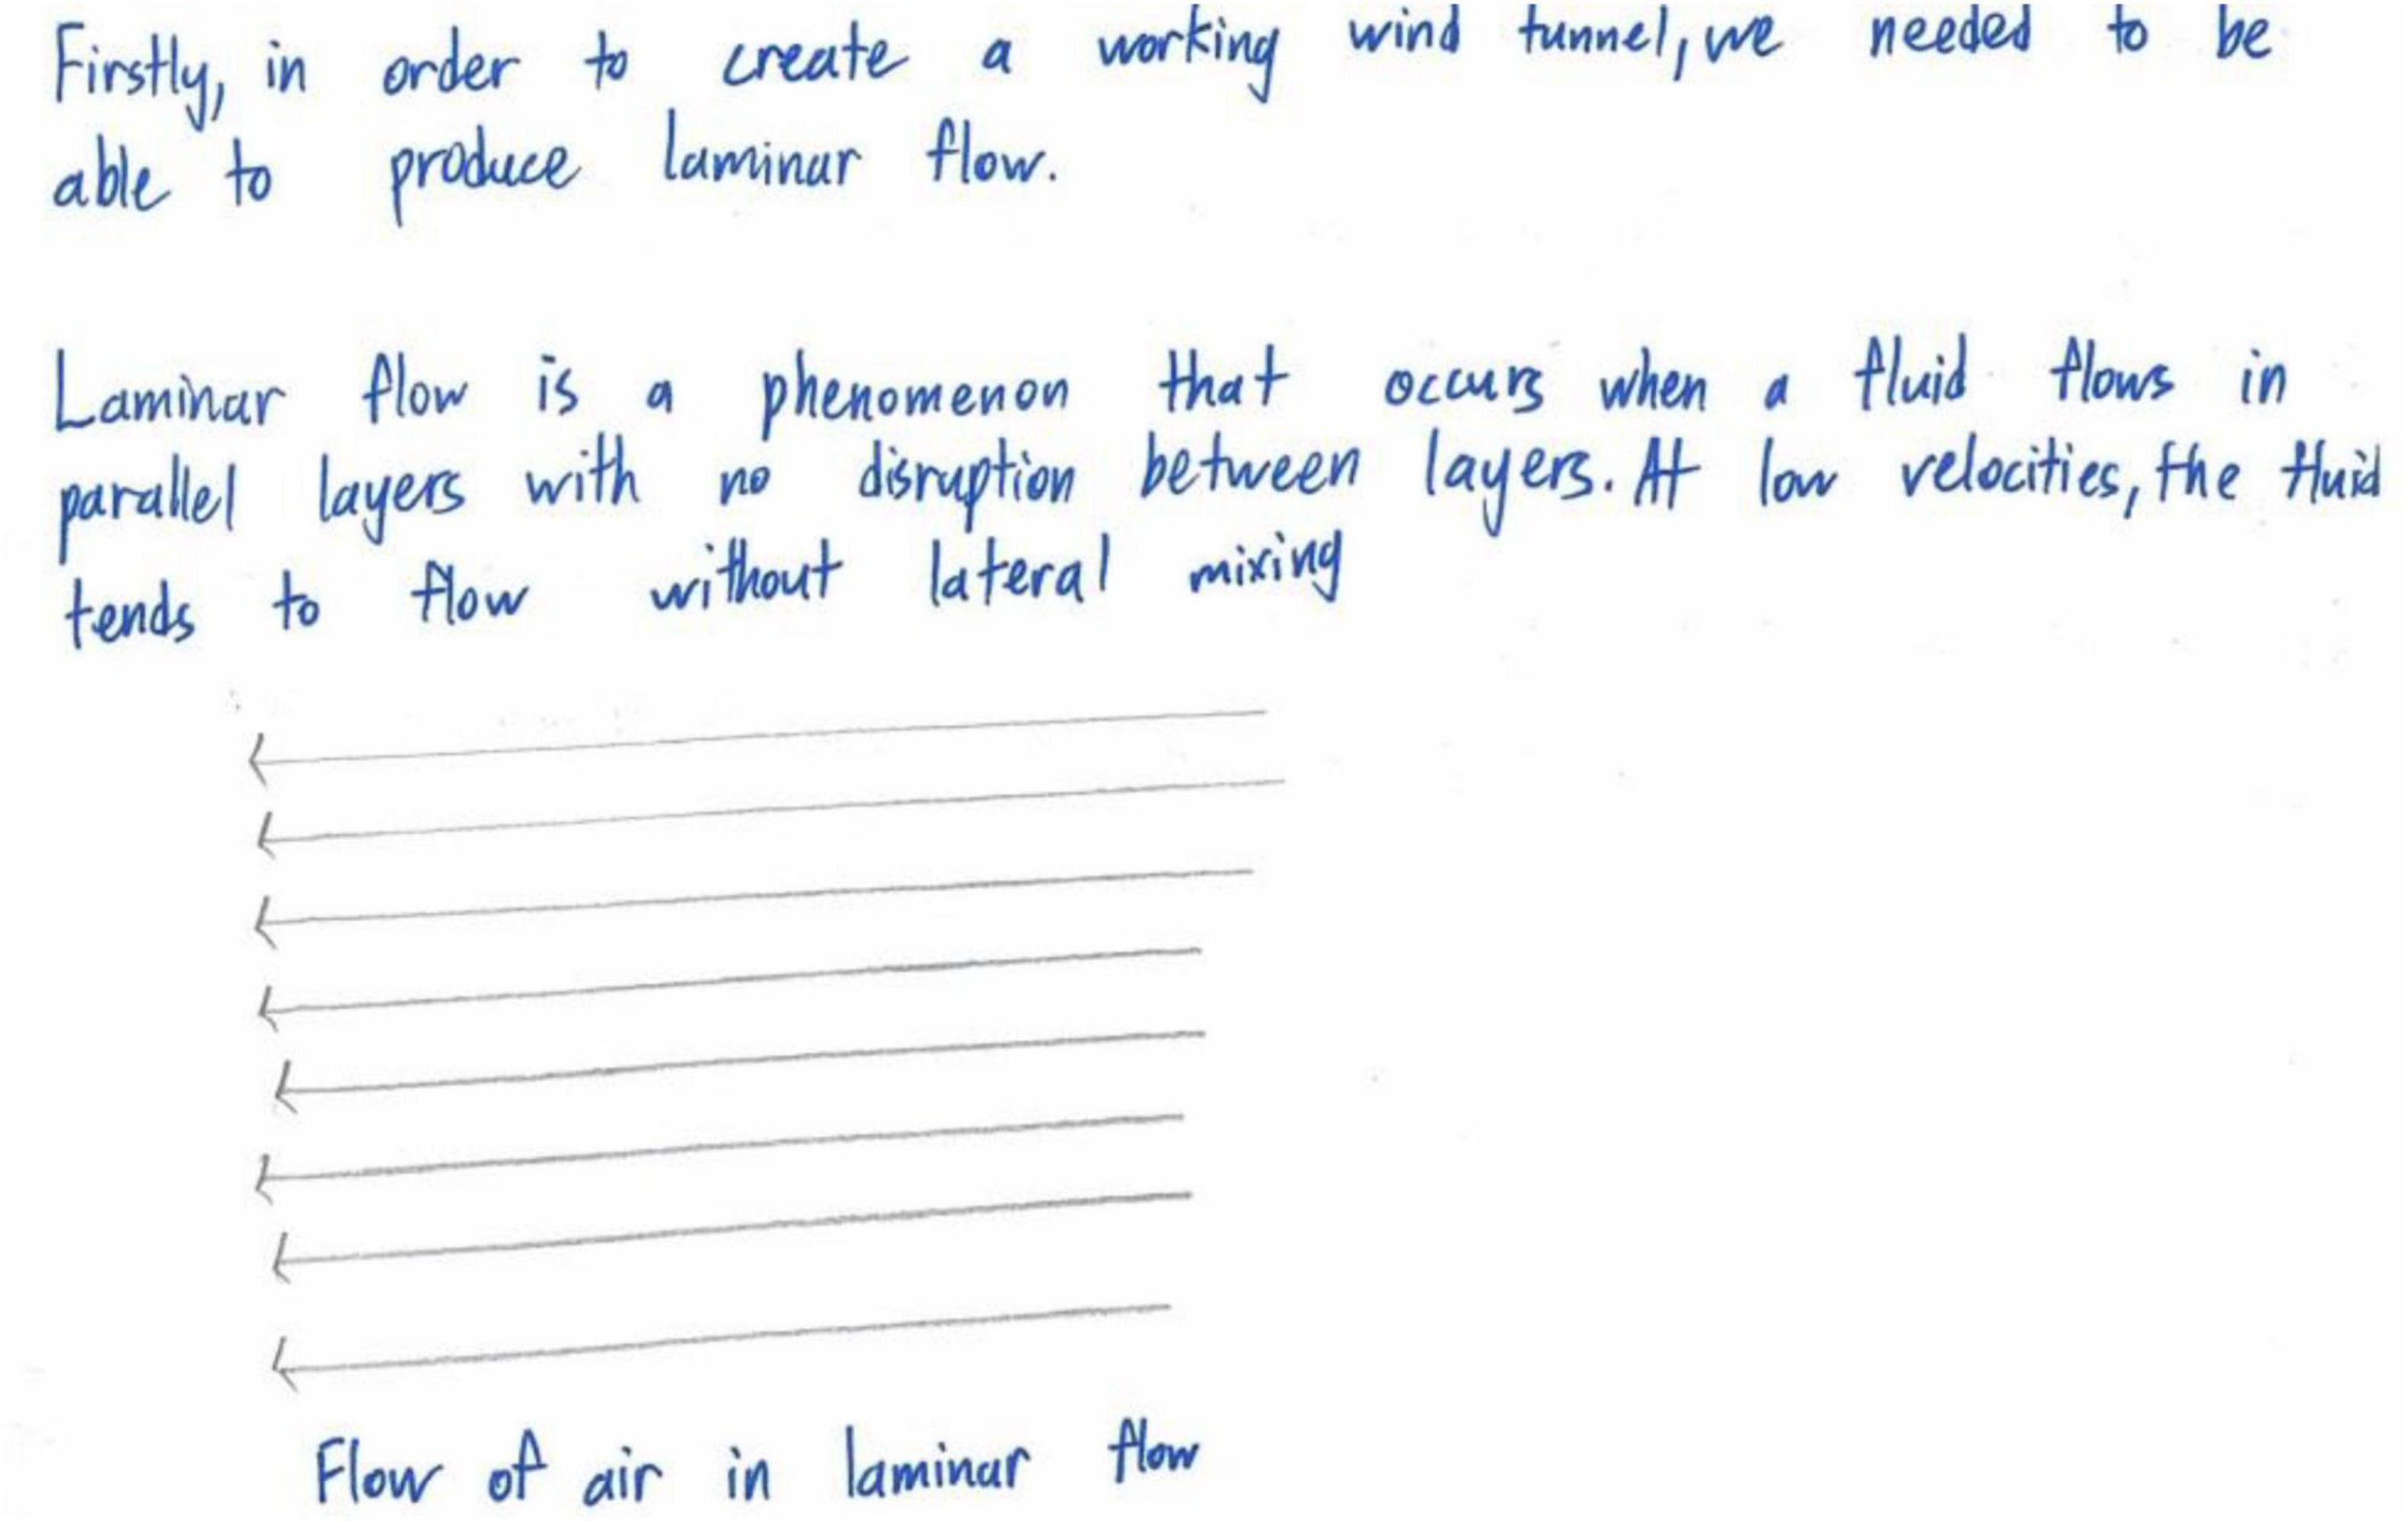 Firstly, in order to create a working wind tunnel, we needed to be
able to produce laminar flow.
Laminar flow is a phenomenon that occurs when a fluid flows in
parallel layers with no disruption between layers. At low velocities, the fluid
tends to flow without lateral mixing
Flow of air in laminar flow